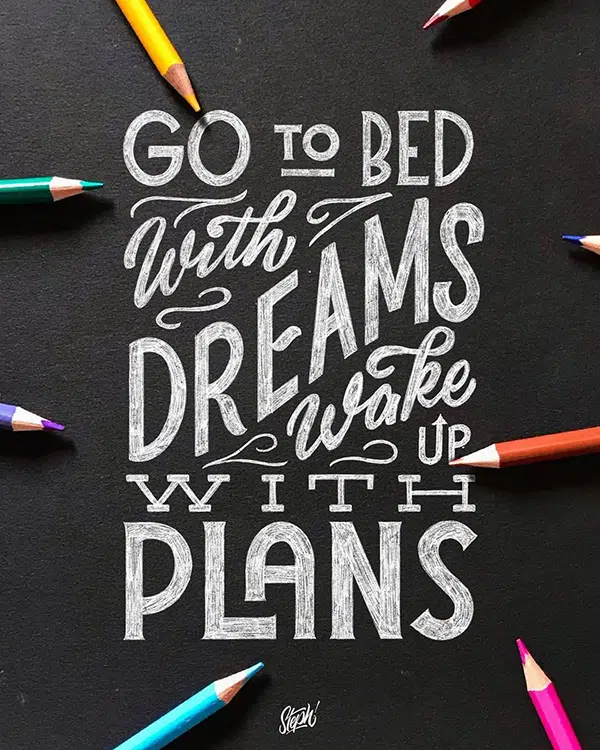 GO TO BED
With
DREAMS
Wake
UP
WITH
PLANS
Steph'